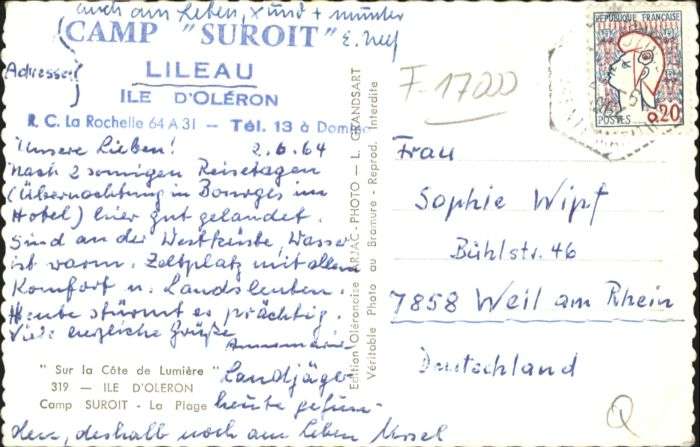 auch am Leben, x und + munter
CAMP "SUROIT" E. Neef
Adresse:
LILEAU
ILE D'OLÉRON
R. C. La Rochelle 64 A 31 - Tél. 13 à Dom
Unsere Lieben! 2.6.64
Nach 2 sonnigen Reisetagen
(Übernachtung in Bourges im
Hotel) hier gut gelandet.
Sind an der Westküste, Wasser
ist warm. Zeltplatz mit allem
Komfort u. Landsleuten.
Heute stürmt es prächtig.
Viele herzliche Grüße
Annemarie
Landjäger
heute gefun-
den, deshalb noch am Leben
" Sur la Côte de Lumière "
319 — ILE D'OLERON
Camp SUROIT - La Plage
Edition Oléronaise ARJAC-PHOTO — L. GRANDSART
Véritable Photo au Bromure - Reprod. Interdite
F. 17000
REPUBLIQUE FRANÇAISE
POSTES 0,20
Frau
Sophie Wipf
Bühlstr. 46
7858 Weil am Rhein
Deutschland
Q